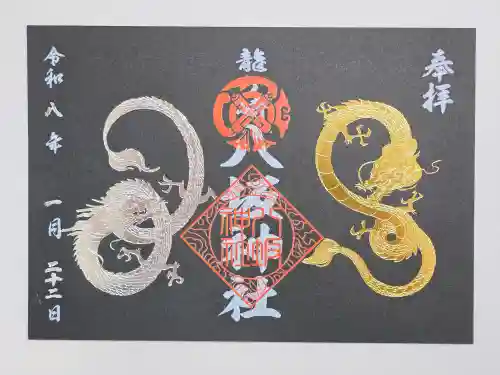 奉拝
龍
八坂神社
令和八年 一月 二十二日